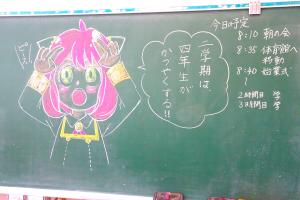 二学期は、
四年生が
かつやくする!!
今日の予定
8:10 朝の会
8:35 体育館へ
移動
8:40 始業式
〜
2時間目 学
3時間目 学